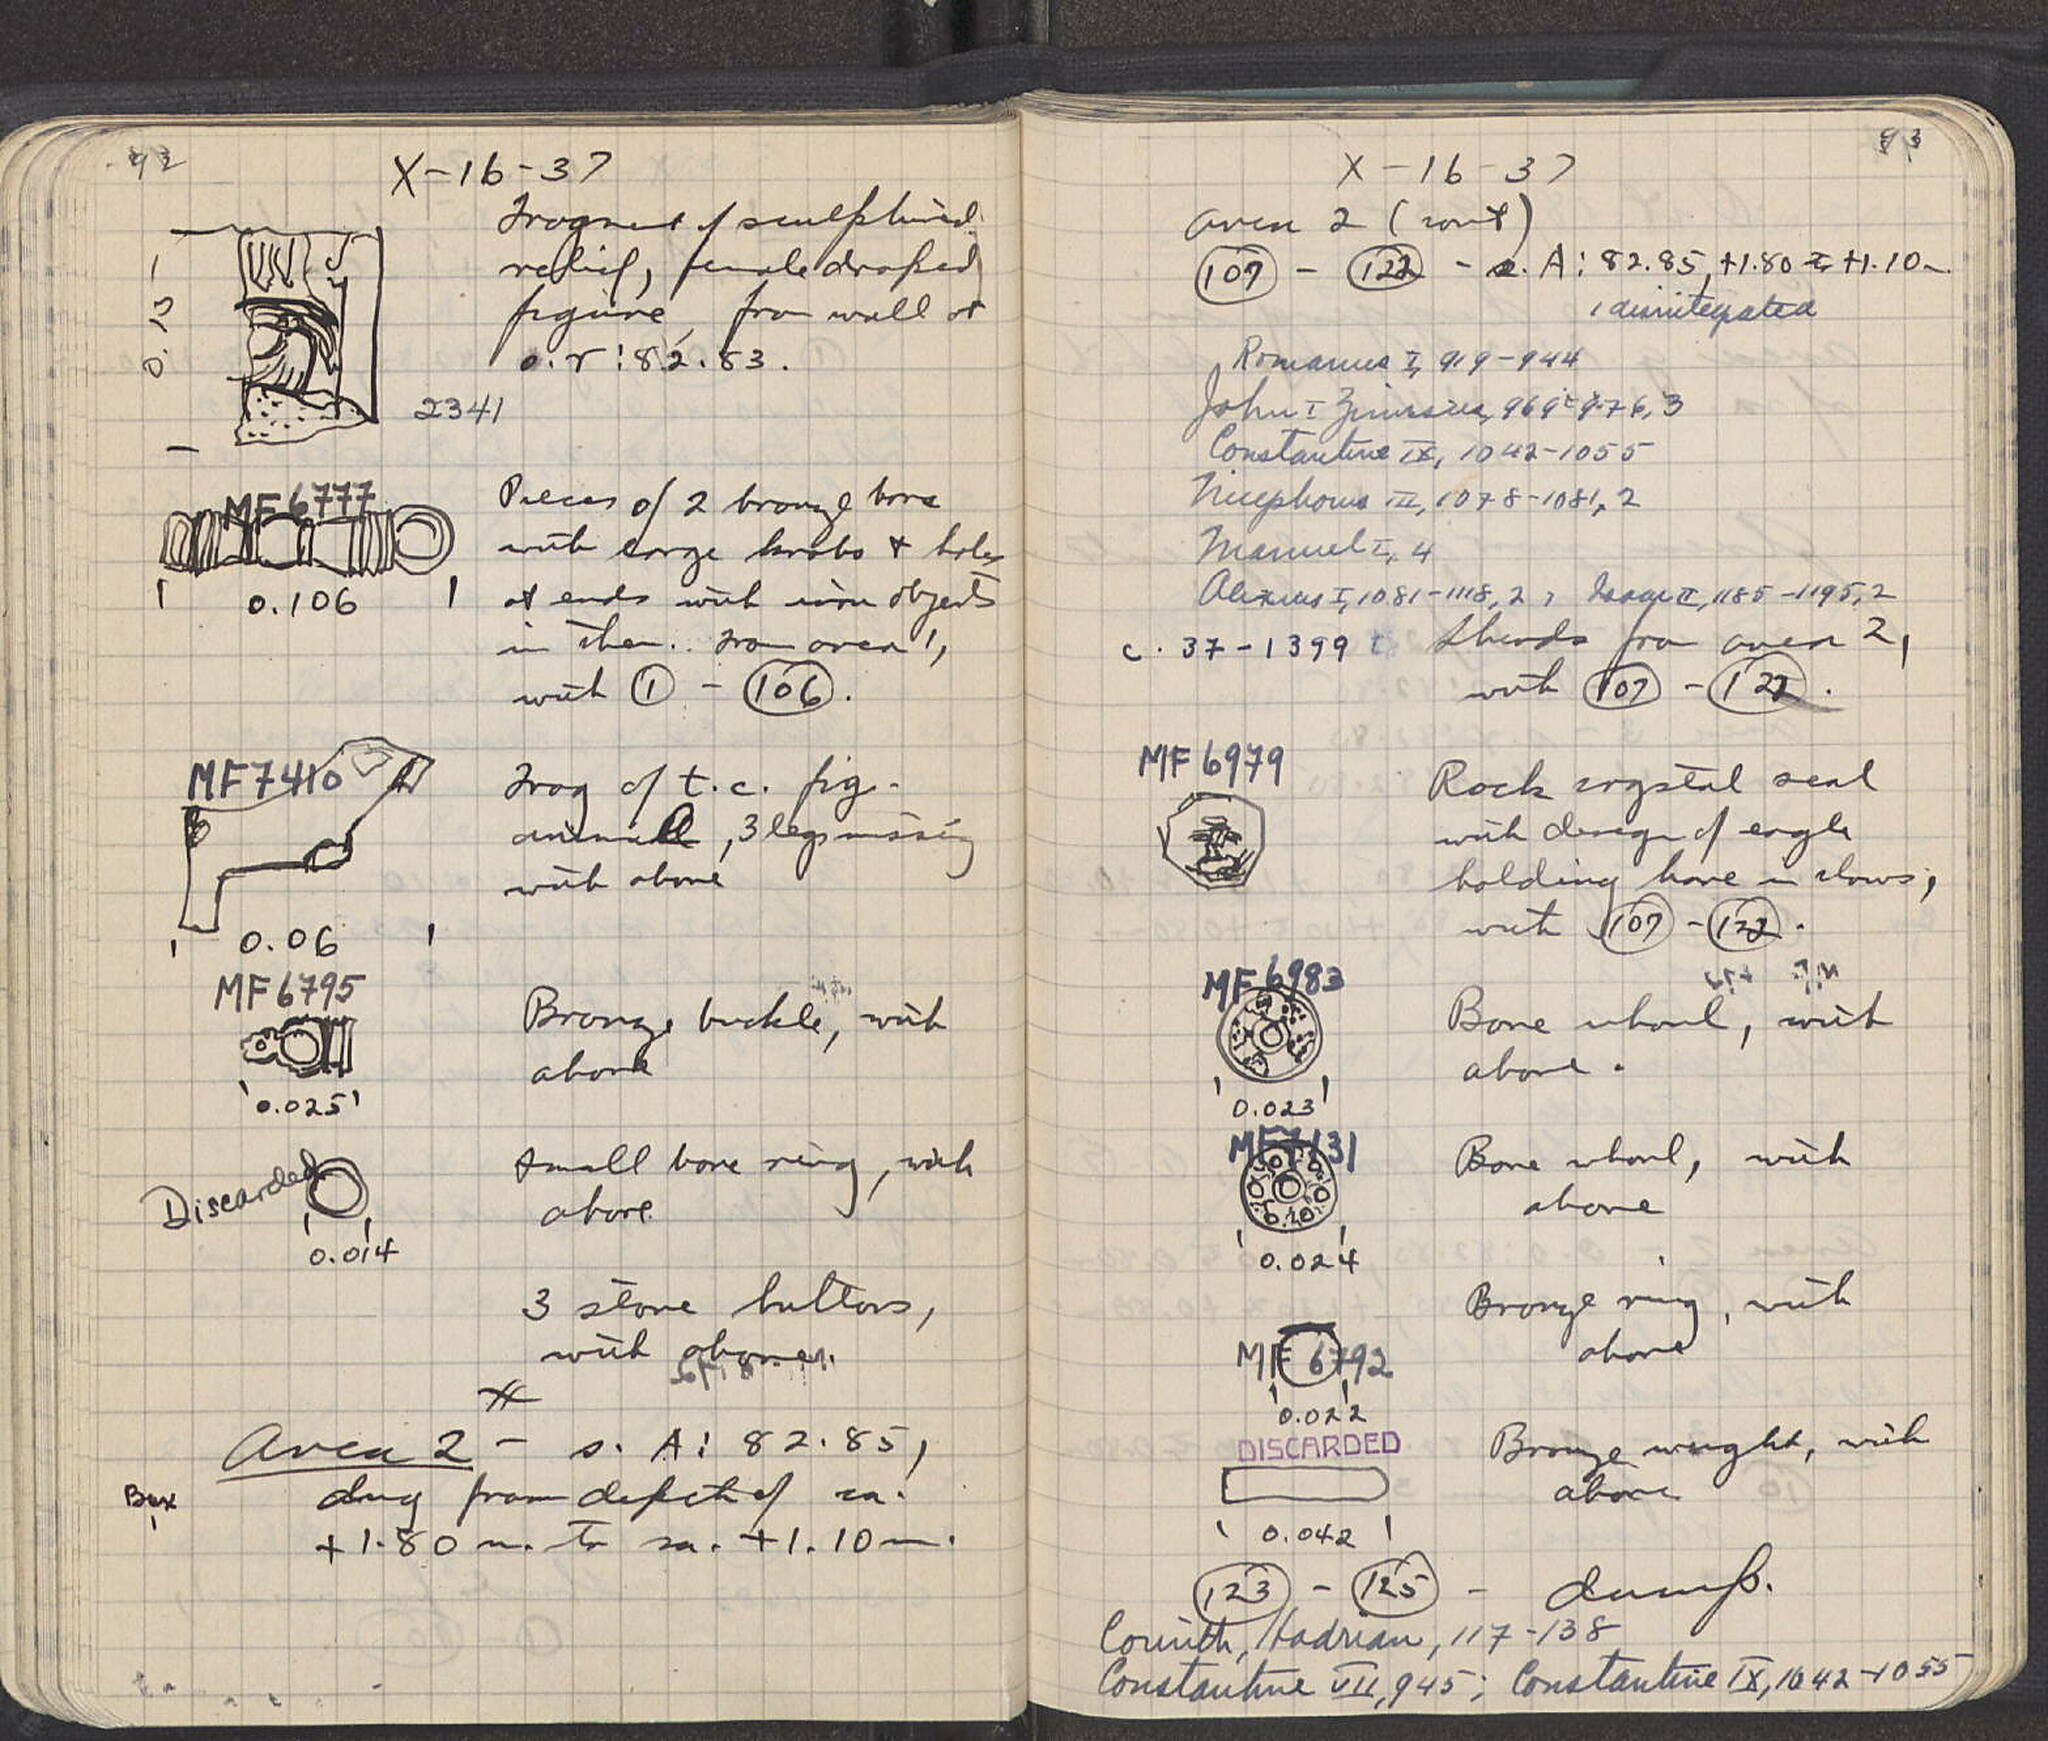 92
X-16-37
Fragment of sculptured
relief, female draped
figure, from wall at
o. r : 82.83.
0.21
2341
MF 6777
Pieces of 2 bronze bars
with large knobs & holes
at ends with iron objects
in them. From area 1,
with 1 - 106.
0.106
MF7410
Frag of t.c. fig.
animal, 3 legs missing
with above
0.06
MF6795
Bronze buckle, with
above
0.025
Discarded
Small bone ring, with
above.
0.014
3 stone buttons,
with above.
Area 2 - s. A: 82.85,
Box
dug from depth of ca.
+1.80 m. to ca. +1.10 m.
93
X-16-37
Area 2 (cont)
107 - 122 - s. A: 82.85, +1.80 to +1.10 m.
1 disintegrated
Romanus I, 919-944
John I Zimisces, 969-976, 3
Constantine IX, 1042-1055
Nicephorus III, 1078-1081, 2
Manuel I, 4
Alexius I, 1081-1118, 2, Isaac II, 1185-1195, 2
c. 37-1399 Sherds from area 2,
with 107 - 122.
MF 6979
Rock crystal seal
with design of eagle
holding hare in claws,
with 107 - 122.
MF 6983
Bone whorl, with
above.
0.023
MF7131
Bone whorl, with
above
0.024
Bronze ring, with
above
MF 6792
0.022
DISCARDED
Bronze weight, with
above
0.042
123 - 125 - dump.
Corinth, Hadrian, 117-138
Constantine VII, 945; Constantine IX, 1042-1055